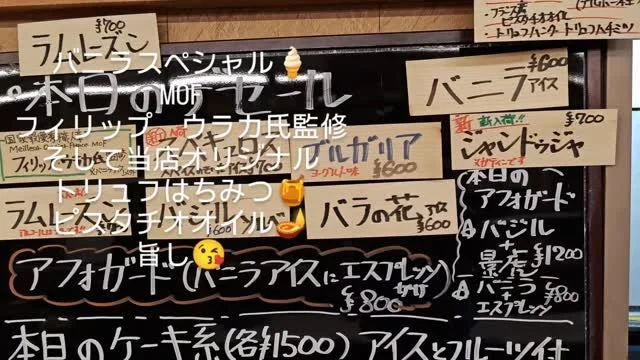 ¥700
ラムレーズン
・ピスタチオオイル
・トリュフハンタートリュフハチミツ
バニラスペシャル🍦
MOF
フィリップ ウラカ氏監修
そして当店オリジナル
トリュフはちみつ🍯
ピスタチオオイル
旨し😘
本日のデセール
¥600
バニラアイス
ブルガリア
ヨーグルト味
¥600
新 新入荷!! ¥700
ジャンドゥジャ
ラムレーズン
バジルソルベ
¥600
バラの花アイス
¥600
本日の
アフォガード
バジル
+
景虎
¥1200
バニラ
+
エスプレッソ
¥800
アフォガード(バニラアイスにエスプレッソかけ)
¥800
本日のケーキ系(各¥1500) アイスとフルーツ付